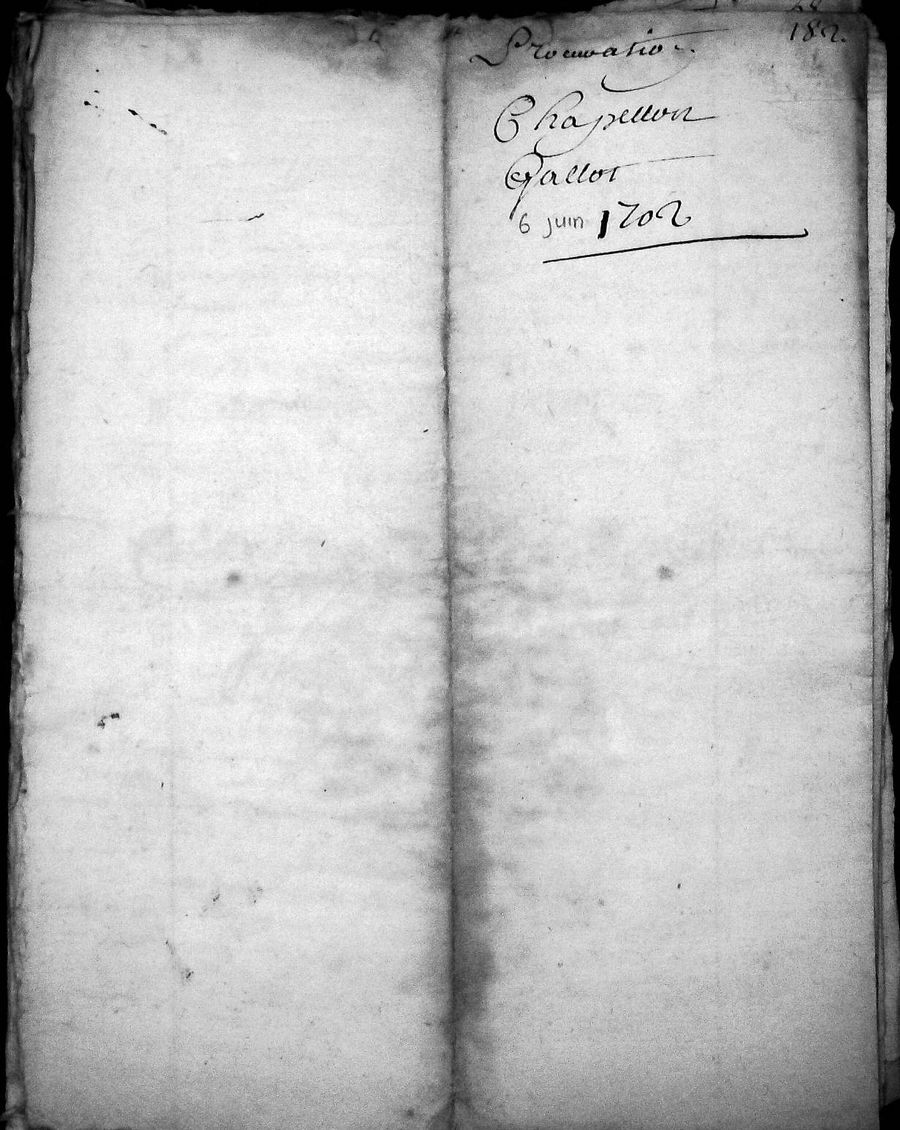 182.
Procuration
Chapellon
Gallot
6 juin 1702